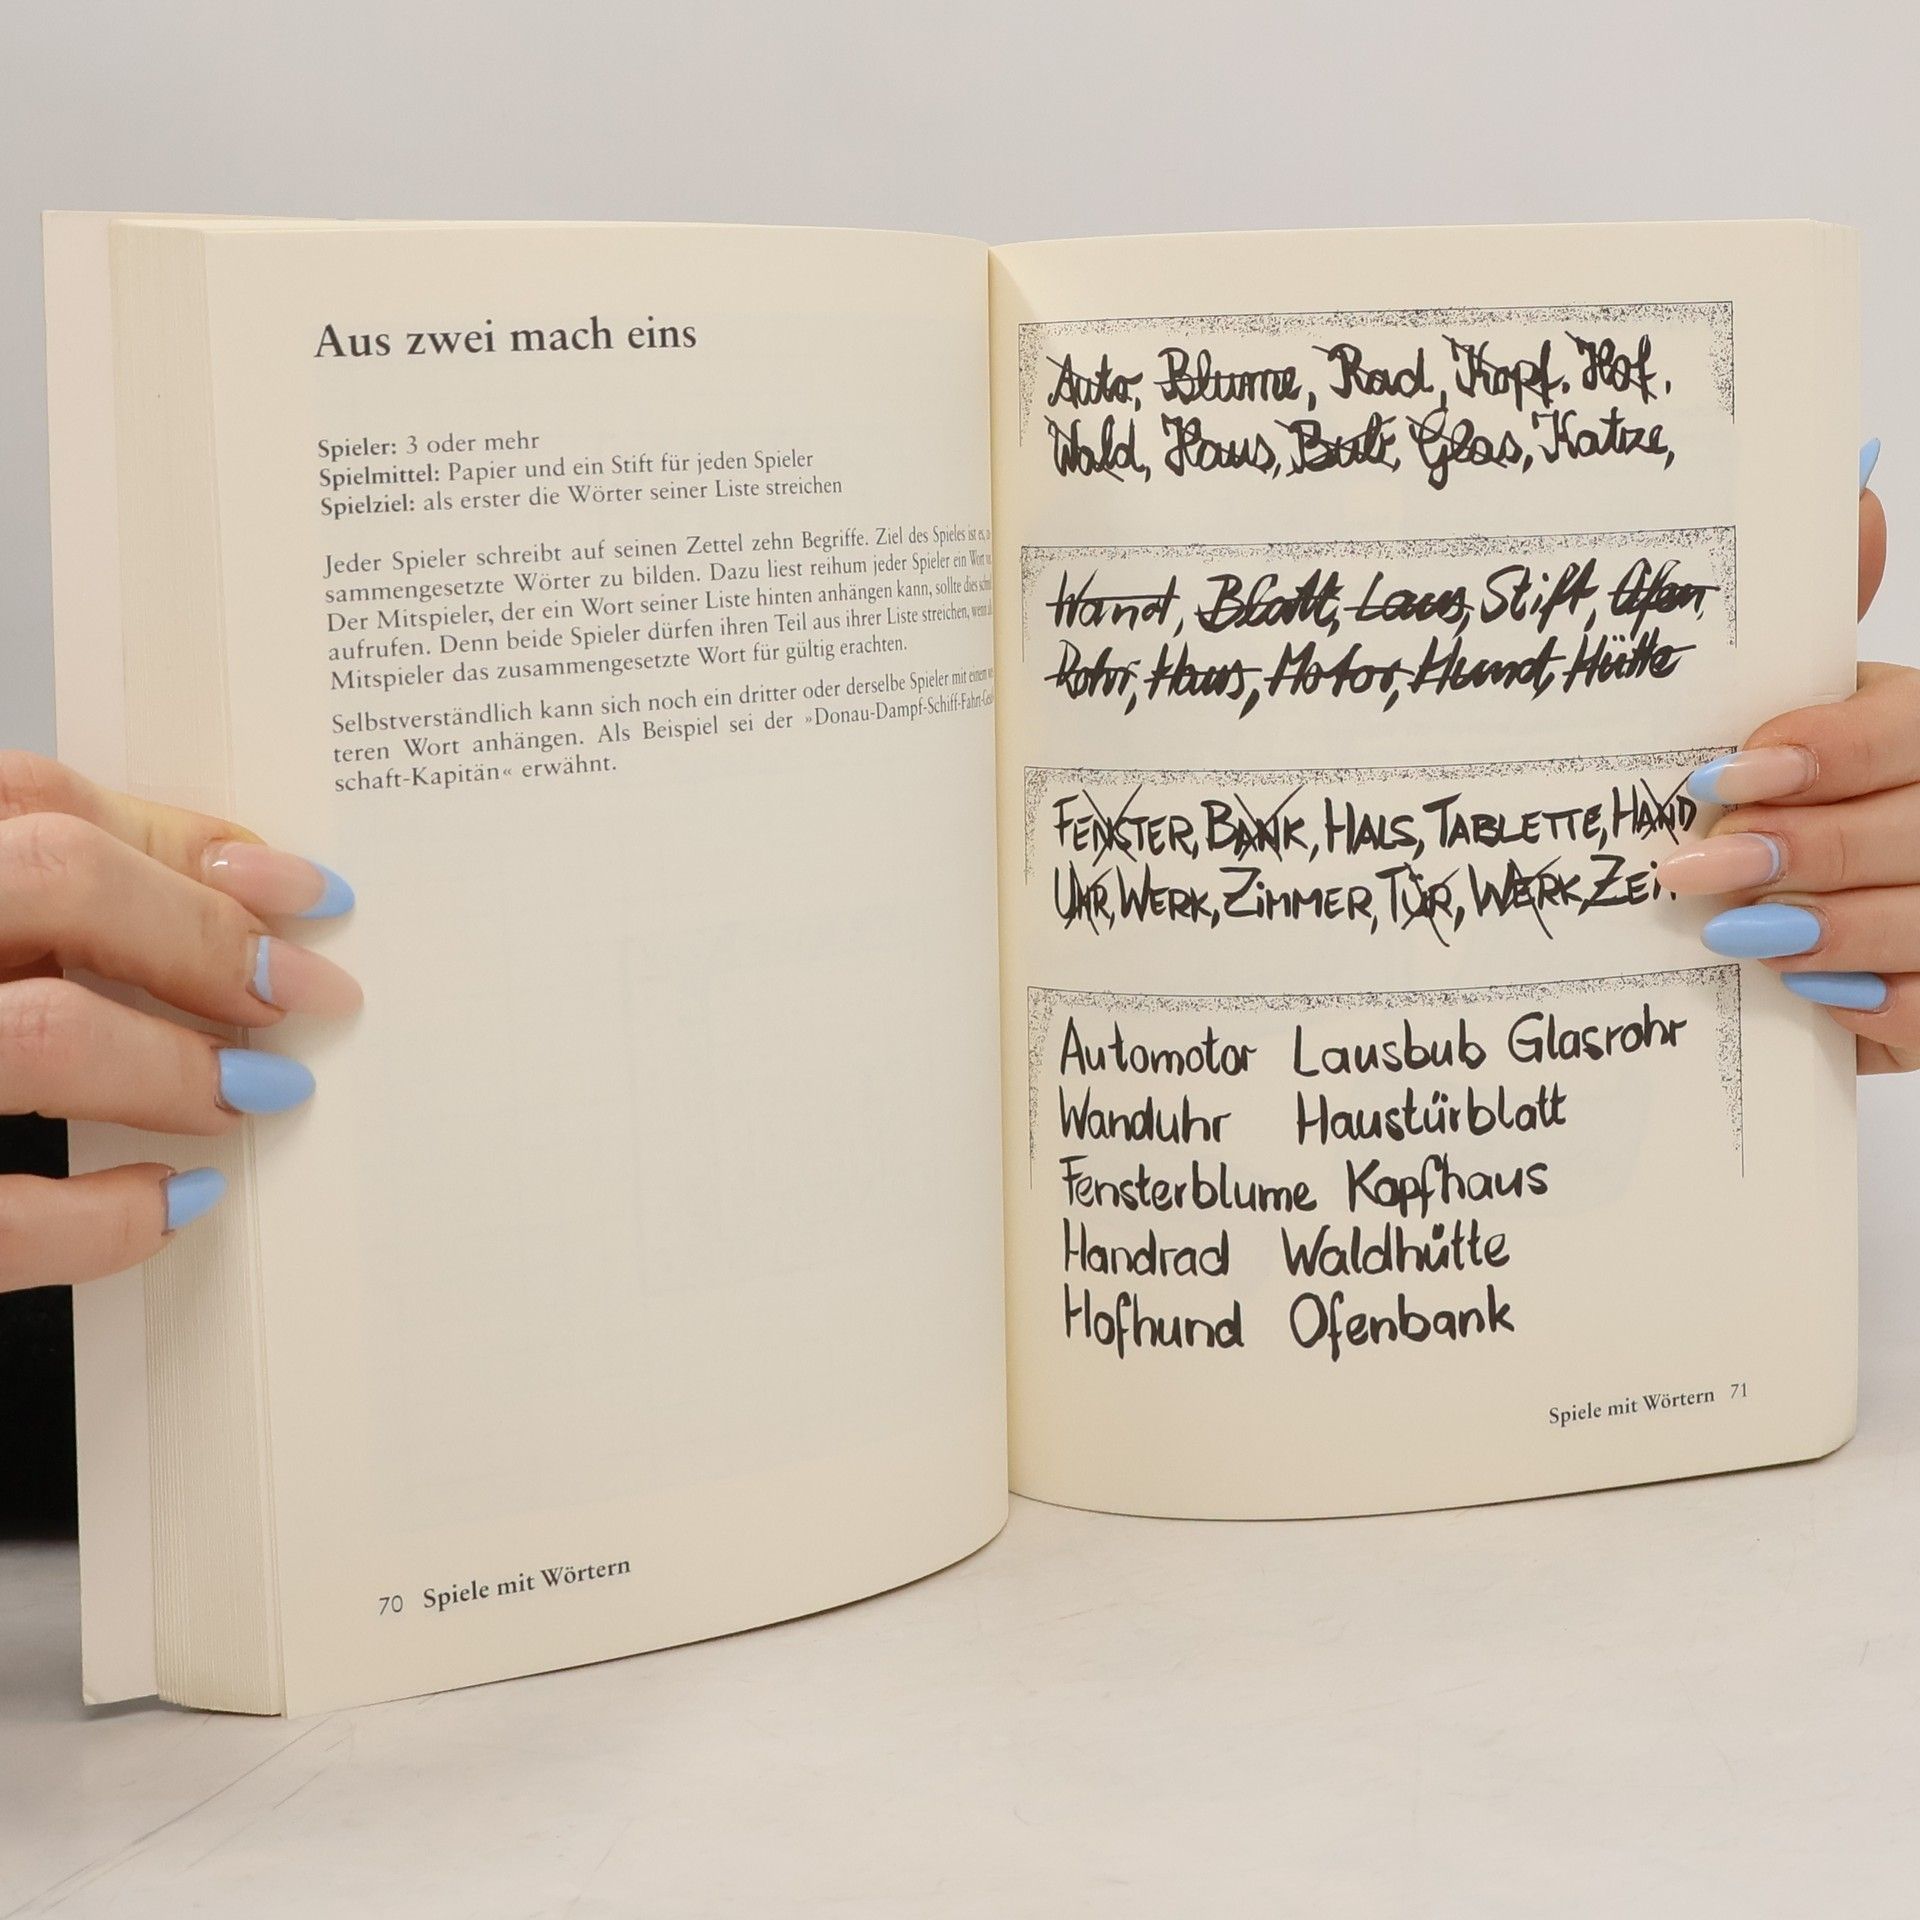 Aus zwei mach eins
Spieler: 3 oder mehr
Spielmittel: Papier und ein Stift für jeden Spieler
Spielziel: als erster die Wörter seiner Liste streichen
Jeder Spieler schreibt auf seinen Zettel zehn Begriffe. Ziel des Spieles ist es,
sammengesetzte Wörter zu bilden. Dazu liest reihum jeder Spieler ein Wort
Der Mitspieler, der ein Wort seiner Liste hinten anhängen kann, sollte dies
aufrufen. Denn beide Spieler dürfen ihren Teil aus ihrer Liste streichen,
Mitspieler das zusammengesetzte Wort für gültig erachten.
Selbstverständlich kann sich noch ein dritter oder derselbe Spieler mit einem
teren Wort anhängen. Als Beispiel sei der »Donau-Dampf-Schiff-Fahrt-
schaft-Kapitän« erwähnt.
70 Spiele mit Wörtern
Auto, Blume, Rad, Kopf, Hof,
Wald, Haus, Bub, Glas, Katze,
Wand, Blatt, Laus, Stift, Ofen,
Rohr, Haus, Motor, Hund, Hütte
FENSTER, BANK, HALS, TABLETTE, HAND
UHR, WERK, ZIMMER, TÜR, WERK, ZEI
Automotor Lausbub Glasrohr
Wanduhr Haustürblatt
Fensterblume Kopfhaus
Handrad Waldhütte
Hofhund Ofenbank
Spiele mit Wörtern 71